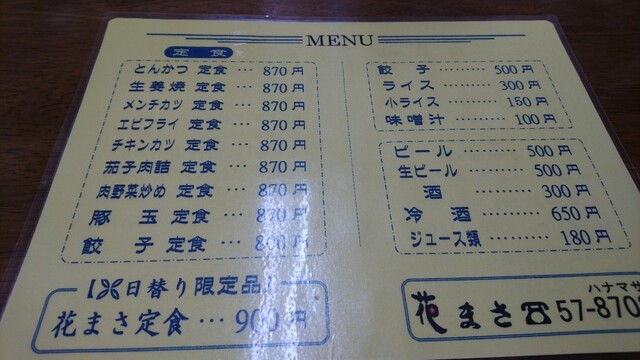 MENU
定食
とんかつ 定食 … 870 円
生姜焼 定食 … 870 円
メンチカツ 定食 … 870 円
エビフライ 定食 … 870 円
チキンカツ 定食 … 870 円
茄子肉詰 定食 … 870 円
肉野菜炒め 定食 … 870 円
豚玉 定食 … 870 円
餃子 定食 … 円
【日替り限定品】
花まさ定食 … 900 円
餃子 ……… 500 円
ライス ……… 300 円
小ライス ……… 150 円
味噌汁 ……… 100 円
ビール ……… 500 円
生ビール ……… 500 円
酒 ……… 300 円
冷酒 ……… 650 円
ジュース類 ……… 180 円
ハナマサ
花まさ☎57-870